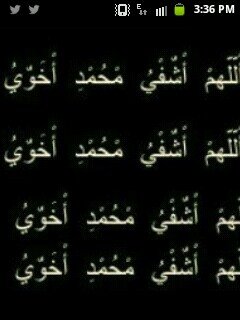 3:36 PM
اَللّهمْ أَشّفْيُ مْحُمْدِ أْخَوّيُ
اَللّهمْ أَشّفْيُ مْحُمْدِ أْخَوّيُ
أَشّفْيُ مْحُمْدِ أْخَوّيُ
أَشّفْيُ مْحُمْدِ أْخَوّيُ